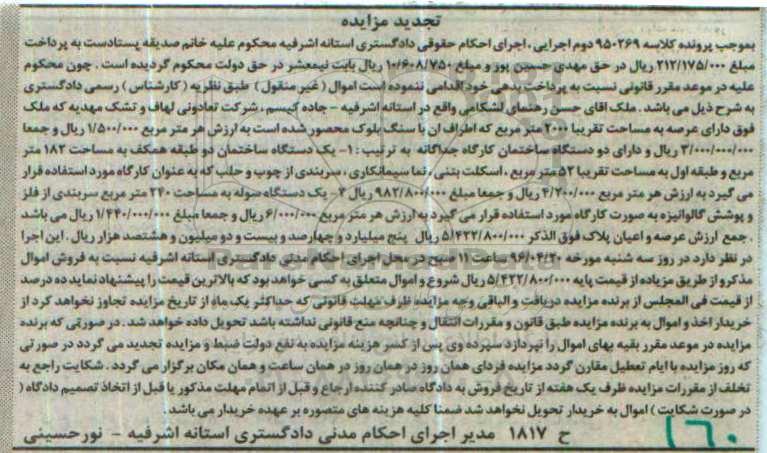 تجدید مزایده
بموجب پرونده کلاسه ۹۵۰۲۶۹ دوم اجرایی، اجرای احکام حقوقی دادگستری استانه اشرفیه محکوم علیه خانم صدیقه پستادست به پرداخت
مبلغ ۲۱۲/۱۷۵/۰۰۰ ریال در حق مهدی حسین پور و مبلغ ۱۰/۶۰۸/۷۵۰ ریال بابت نیمعشر در حق دولت محکوم گردیده است . چون محکوم
علیه در موعد مقرر قانونی نسبت به پرداخت بدهی خود اقدامی ننموده است اموال ( غیر منقول ) طبق نظریه ( کارشناس ) رسمی دادگستری
به شرح ذیل می باشد . ملک اقای حسن رهنمای لشکامی واقع در استانه اشرفیه - جاده کیسم ، شرکت تعاونی لهاف و تشک مهدیه که ملک
فوق دارای عرصه به مساحت تقریبا ۲۰۰۰ متر مربع که اطراف ان با سنگ بلوک محصور شده است به ارزش هر متر مربع ۱/۵۰۰/۰۰۰ ریال و جمعا
۳/۰۰۰/۰۰۰/۰۰۰ ریال و دارای دو دستگاه ساختمان کارگاه جداگانه به ترتیب : ۱- یک دستگاه ساختمان دو طبقه همکف به مساحت ۱۸۲ متر
مربع و طبقه اول به مساحت تقریبا ۵۲ متر مربع ، اسکلت بتنی ، نما سیمانکاری ، سربندی از چوب و حلب که به عنوان کارگاه مورد استفاده قرار
می گیرد به ارزش هر متر مربع ۴/۲۰۰/۰۰۰ ریال و جمعا مبلغ ۹۸۲/۸۰۰/۰۰۰ ریال ۲- یک دستگاه سوله به مساحت ۲۴۰ متر مربع سربندی از فلز
و پوشش گالوانیزه به صورت کارگاه مورد استفاده قرار می گیرد به ارزش هر متر مربع ۶/۰۰۰/۰۰۰ ریال و جمعا مبلغ ۱/۴۴۰/۰۰۰/۰۰۰ ریال می باشد
. جمع ارزش عرصه و اعیان پلاک فوق الذکر ۵/۴۲۲/۸۰۰/۰۰۰ ریال پنج میلیارد و چهارصد و بیست و دو میلیون و هشتصد هزار ریال . این اجرا
در نظر دارد در روز سه شنبه مورخه ۹۶/۰۴/۲۰ ساعت ۱۱ صبح در محل اجرای احکام مدنی دادگستری استانه اشرفیه نسبت به فروش اموال
مذکور از طریق مزیاده از قیمت پایه ۵/۴۲۲/۸۰۰/۰۰۰ ریال شروع و اموال متعلق به کسی خواهد بود که بالاترین قیمت را پیشنهاد نماید ده درصد
از قیمت فی المجلس از برنده مزایده دریافت و الباقی وجه مزایده ظرف مهلت قانونی که حداکثر یک ماه از تاریخ مزایده تجاوز نخواهد کرد از
خریدار اخذ و اموال به برنده مزایده طبق قانون و مقررات انتقال و چنانچه منع قانونی نداشته باشد تحویل داده خواهد شد . در صورتی که برنده
مزایده در موعد مقرر بقیه بهای اموال را نپردازد سپرده وی پس از کسر هزینه مزایده به نفع دولت ضبط و مزایده تجدید می گردد در صورتی
که روز مزایده با ایام تعطیل مقارن گردد مزایده فردای همان روز در همان روز در همان ساعت و همان مکان برگزار می گردد . شکایت راجع به
تخلف از مقررات مزایده ظرف یک هفته از تاریخ فروش به دادگاه صادر کننده ارجاع و قبل از اتمام مهلت مذکور یا قبل از اتخاذ تصمیم دادگاه (
در صورت شکایت ) اموال به خریدار تحویل نخواهد شد ضمنا کلیه هزینه های متصوره بر عهده خریدار می باشد .
ح ۱۸۱۷ مدیر اجرای احکام مدنی دادگستری استانه اشرفیه - نورحسینی
۱۶۰